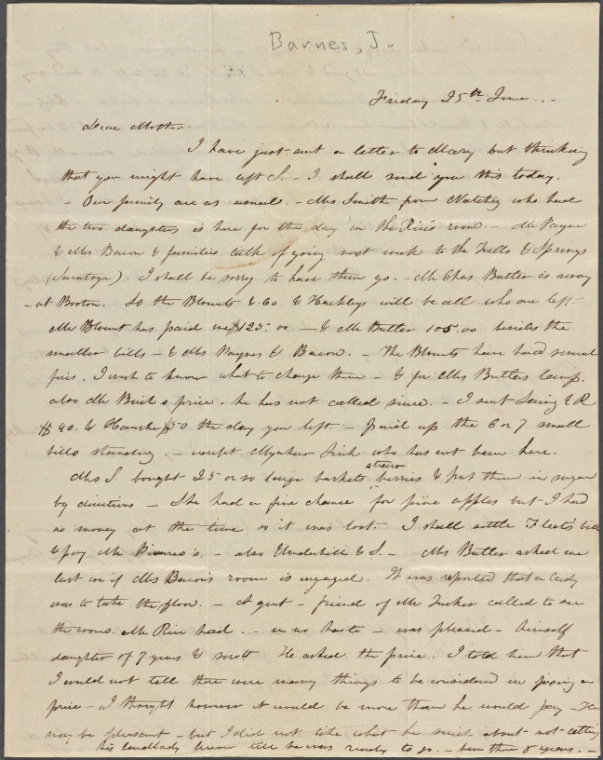 Barnes, J.
Friday 25th June
Dear Mother
I have just sent a letter to Mary but thinking
that you might have left S. - I shall send you this today.
- Our family are as usual. - Mrs Smith from Natchez who had
the two daughters is here for the day in the room. - Mr Payne
& Mrs Bacon & families talk of going next week to the Falls & Springs
(Saratoga). I shall be sorry to have them go. - Mr Chas Butler is away
- at Boston. So the Blounts & Co & Hackleys will be all who are left -
Mr Blount has paid me $125.00 - & Mr Butler 105.00 besides the
smaller bills - & Mrs Paynes & Bacon. - The Blounts have had several
fires. I wish to know what to charge them - & for Mrs Butlers lamp.
also Mr price. he has not called since. - I sent & R
$40. & $50 the day you left - paid up the 6 or 7 small
bills standing. - except who has not been here.
Mrs S. bought 25 or so large baskets straw berries & put them in sugar
by directions - She had a fine chance for pine apples but I had
no money at the time so it was lost - I shall settle bill
& pay Mr - also Underhill & S. - Mr Butler asked me
last eve if Mrs Bacon's room is engaged. It was reported that a lady
was to take the floor. - A gent - friend of Mr Tucker called to see
the rooms Mr had. - in no haste - was pleased - himself
daughter of 7 years & He asked the price. I told him that
I could not tell there were many things to be considered in fixing a
price - I thought however it would be more than he would pay - He
may be pleasant - but I did not like what he said about not letting
his landlady know till he was ready to go. - been there 5 years. -